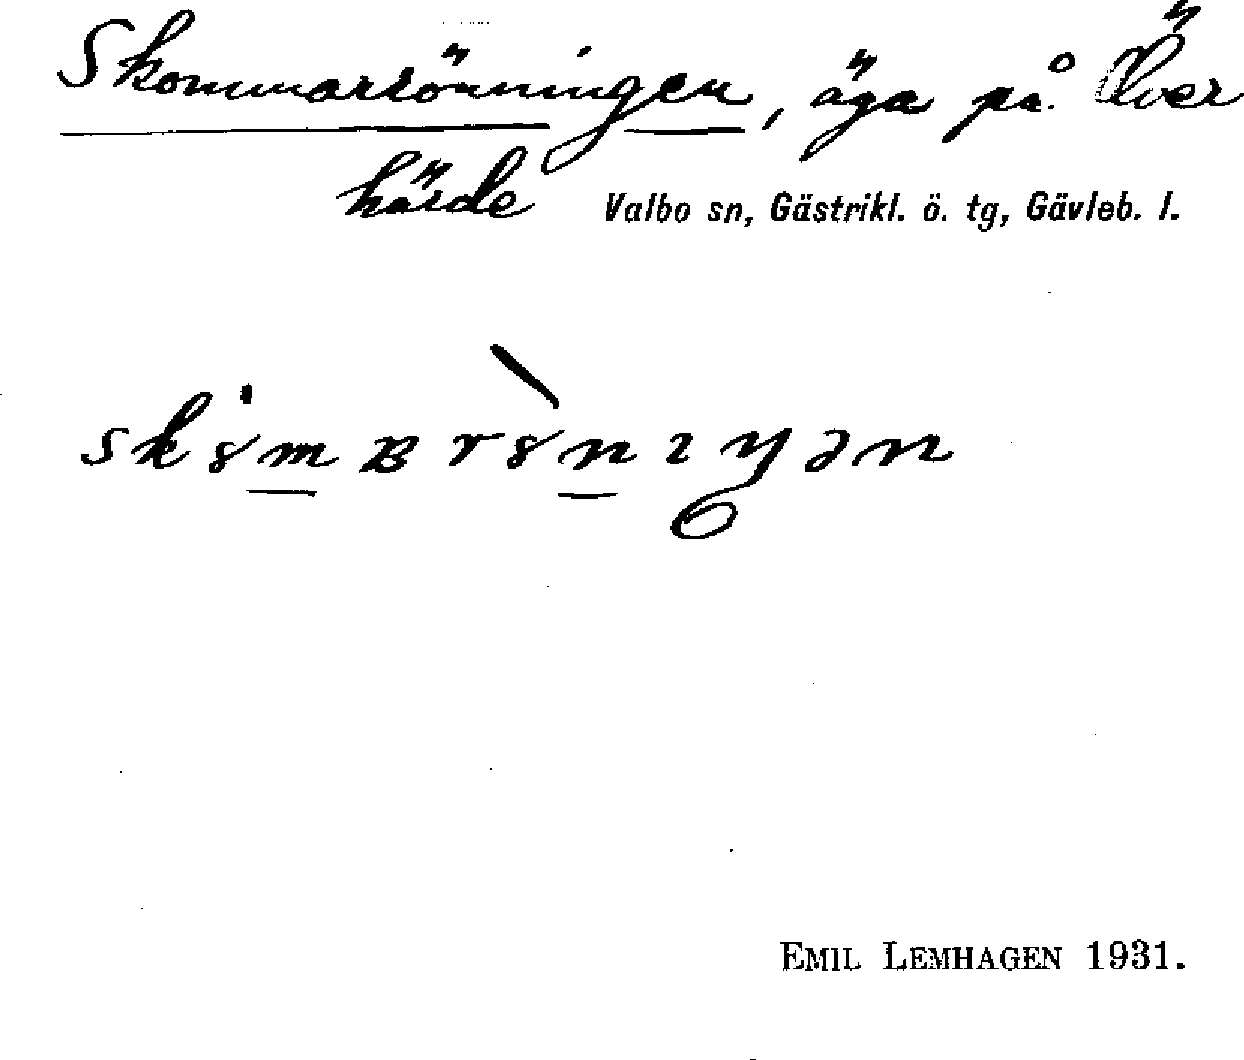 Skommarrönningen, äga på Över
härde Valbo sn, Gästrikl. ö. tg, Gävleb. l.
skȣm̲ʙrȣ̀n̲ɪŋən
EMIL LEMHAGEN 1931.